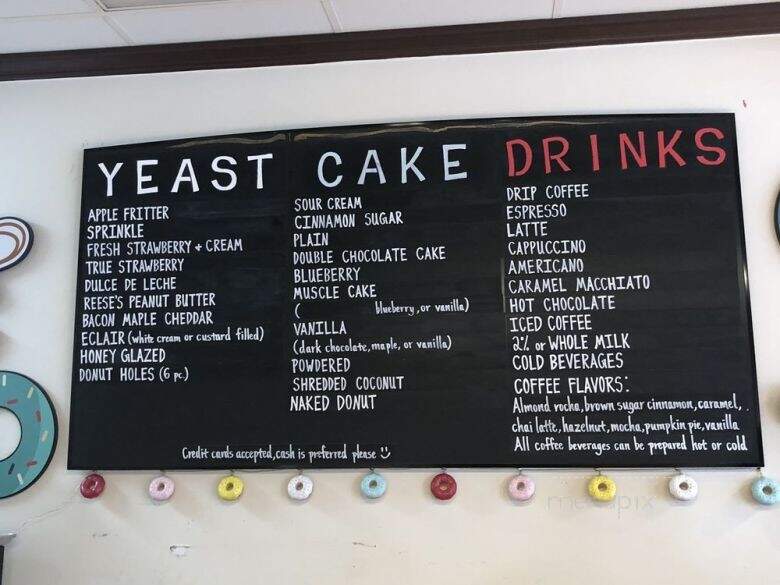 YEAST
APPLE FRITTER
SPRINKLE
FRESH STRAWBERRY + CREAM
TRUE STRAWBERRY
DULCE DE LECHE
REESE'S PEANUT BUTTER
BACON MAPLE CHEDDAR
ECLAIR (white cream or custard filled)
HONEY GLAZED
DONUT HOLES (6 pc.)
CAKE
SOUR CREAM
CINNAMON SUGAR
PLAIN
DOUBLE CHOCOLATE CAKE
BLUEBERRY
MUSCLE CAKE
( blueberry, or vanilla)
VANILLA
(dark chocolate, maple, or vanilla)
POWDERED
SHREDDED COCONUT
NAKED DONUT
DRINKS
DRIP COFFEE
ESPRESSO
LATTE
CAPPUCCINO
AMERICANO
CARAMEL MACCHIATO
HOT CHOCOLATE
ICED COFFEE
2% or WHOLE MILK
COLD BEVERAGES
COFFEE FLAVORS:
Almond rocha, brown sugar cinnamon, caramel,
chai latte, hazelnut, mocha, pumpkin pie, vanilla
All coffee beverages can be prepared hot or cold
Credit cards accepted, cash is preferred please